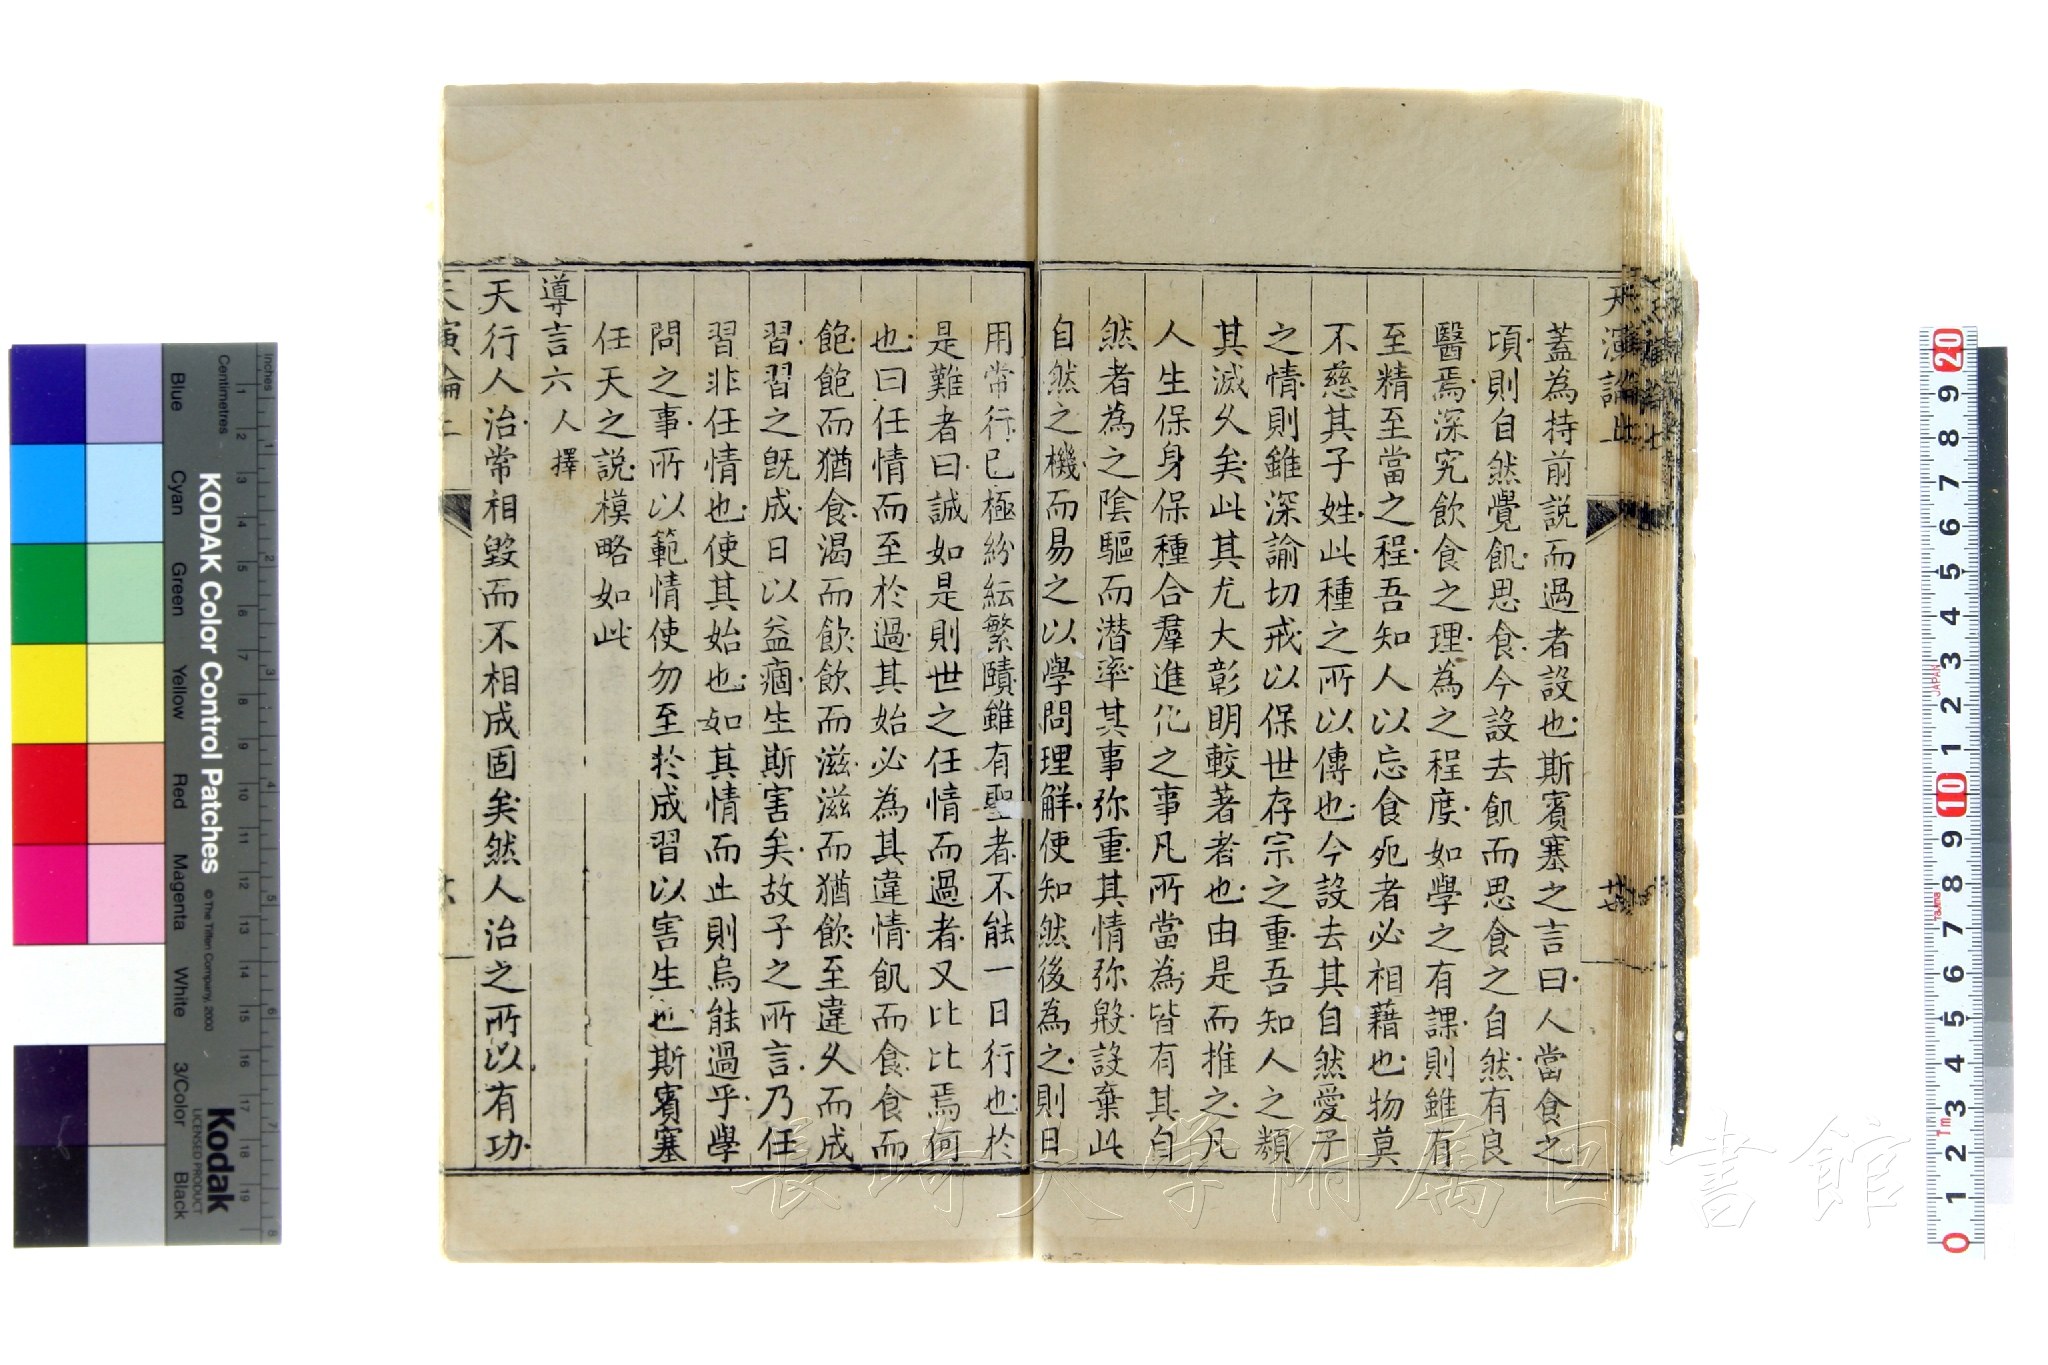 天演論上
蓋為持前説而過者設也斯賓塞之言曰人當食之
頃則自然覺飢思食今設去飢而思食之自然有良
醫焉深究飲食之理為之程度如學之有課則雖有
至精至當之程吾知人以忘食死者必相藉也物莫
不慈其子姓此種之所以傳也今設去其自然愛子
之情則雖深諭切戒以保世存宗之重吾知人之類
其滅久矣此其尤大彰明較著者也由是而推之凡
人生保身保種合羣進化之事凡所當為皆有其自
然者為之陰驅而潛率其事弥重其情弥殷設棄此
自然之機而易之以學問理解使知然後為之則日
用常行已極紛紜繁賾雖有聖者不能一日行也於
是難者曰誠如是則世之任情而過者又比比焉何
也曰任情而至於過其始必為其違情飢而食食而
飽飽而猶食渴而飲飲而滋滋而猶飲至違久而成
習習之既成日以益痼生斯害矣故子之所言乃任
習非任情也使其始也如其情而止則烏能過乎學
問之事所以範情使勿至於成習以害生也斯賓塞
任天之説模略如此
導言六 人擇
天行人治常相毀而不相成固矣然人治之所以有功
天演論上
廿七
長崎大学附属図書館
KODAK Color Control Patches
© The Tiffen Company, 2000
Kodak
LICENSED PRODUCT
Inches
Centimetres
Blue
Cyan
Green
Yellow
Red
Magenta
White
3/Color
Black
1 2 3 4 5 6 7 8 9 10 11 12 13 14 15 16 17 18 19
1 2 3 4 5 6 7 8
20 9 8 7 6 5 4 3 2 1 10 9 8 7 6 5 4 3 2 1 0
JAPAN
Tajima
1m